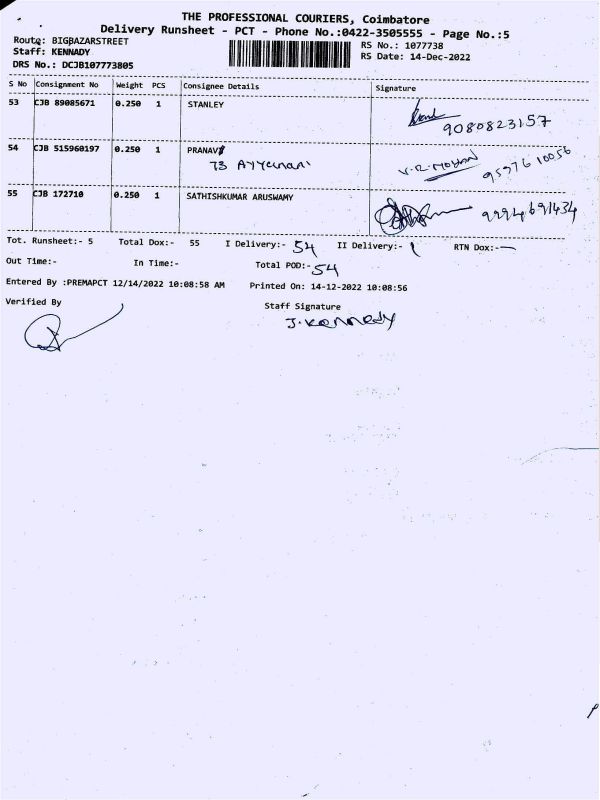 THE PROFESSIONAL COURIERS, Coimbatore
Delivery Runsheet - PCT - Phone No.:0422-3505555 - Page No.:5
Route: BIGBAZARSTREET
RS No.: 1077738
Staff: KENNADY
RS Date: 14-Dec-2022
DRS No.: DCJB107773805
S No Consignment No Weight PCS Consignee Details Signature
53 CJB 89085671 0.250 1 STANLEY
9080823157
54 CJB 515960197 0.250 1 PRANAV
73 V.R.Mohan 9597610056
55 CJB 172710 0.250 1 SATHISHKUMAR ARUSWAMY
9994691434
Tot. Runsheet:- 5 Total Dox:- 55 I Delivery:- 54 II Delivery:- 1 RTN Dox:-—
Out Time:- In Time:- Total POD:- 54
Entered By :PREMAPCT 12/14/2022 10:08:58 AM Printed On: 14-12-2022 10:08:56
Verified By Staff Signature
J.Kennedy